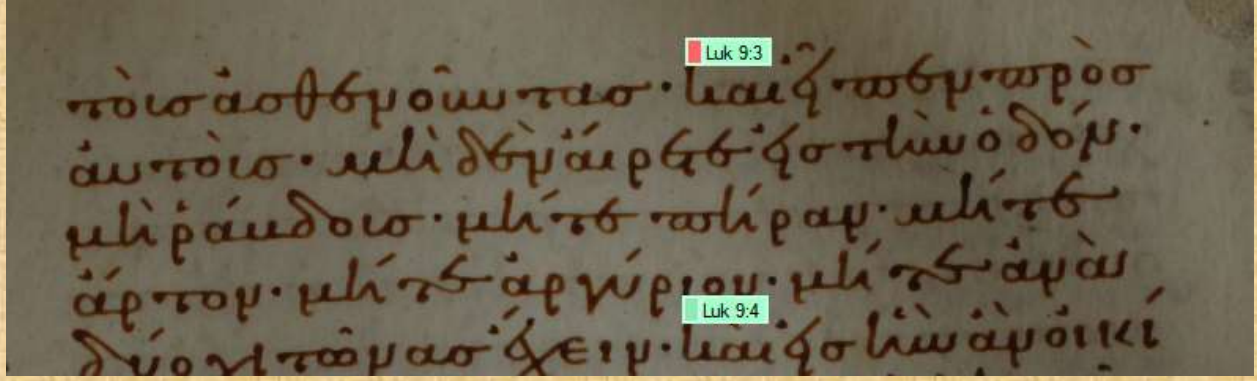 Luk 9:3
τοὺσ ἀσθενοῦντασ· καὶ εἶπεν πρὸσ
ἀυτοὺσ· μὴδὲν ἄιρετε ἐισ τὴν ὁδόν·
μὴ ῥάβδουσ· μήτε πήραν· μήτε
ἄρτον· μήτε ἀργύριον· μήτε ἀνὰ
Luk 9:4
δύο χιτῶνασ ἔχειν· καὶ εἰσ ἣν ἀν οἰκί